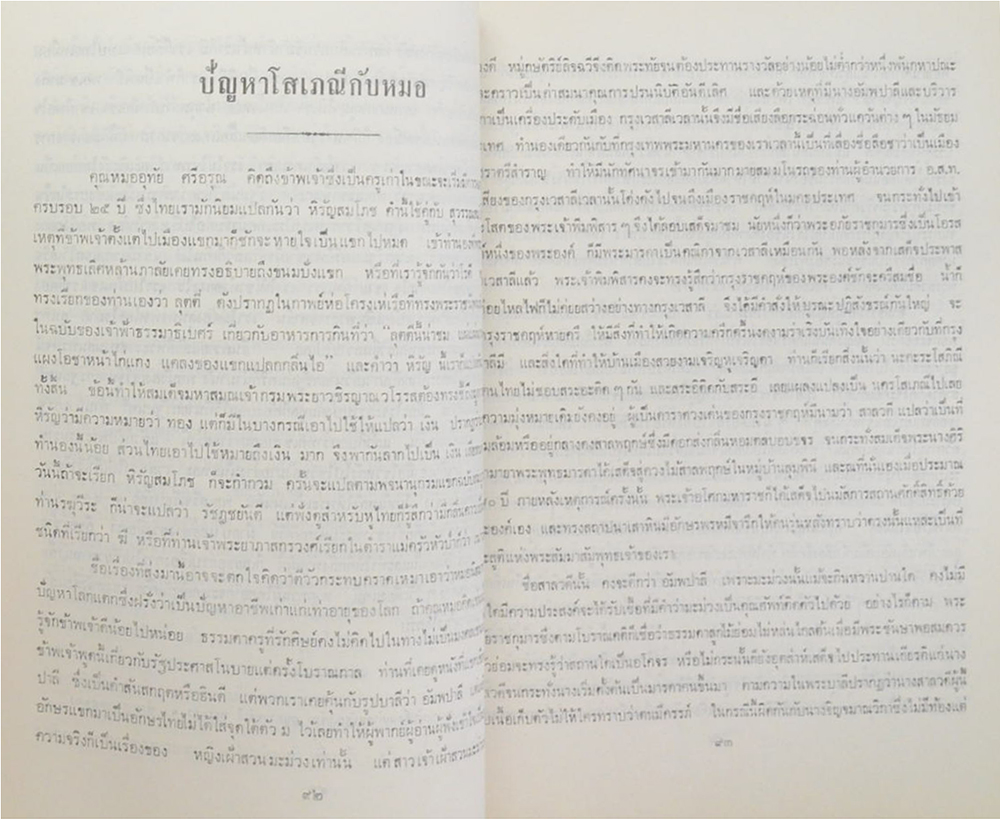 ปัญหาโสเภณีกับหมอ
คุณหมออุทัย ศรีอรุณ คิดถึงข้าพเจ้าซึ่งเป็นครูเก่าในขณะจะเริ่ม
ครบรอบ ๒๕ ปี ซึ่งไทยเรามักนิยมแปลกันว่า หิรัญสมโภช คำนี้ใช้คู่กับ
เหตุที่ข้าพเจ้าตั้งแต่ไปเมืองแขกมาก็ชักจะหายใจเป็นแขกไปหมด เข้าทำนอง
พระพุทธเลิศหล้านภาลัยเคยทรงอธิบายถึงขนมบั่งแขก หรือที่เรารู้จักกันว่าโรตี
ทรงเรียกของท่านเองว่า ลุดตี่ ดังปรากฏในกาพย์ห่อโครงเห่เรือที่ทรงพระราช
ในฉบับของเจ้าฟ้าธรรมาธิเบศร์ เกี่ยวกับอาหารการกินที่ว่า "ลุดตี่นี้น่าชม
แผงโอชาหน้าไก่แกง แคลงของแขกแปลกกลิ่นไอ" และคำว่า หิรัญ
ทั้งสิ้น ข้อนี้ทำให้สมเด็จมหาสมณเจ้ากรมพระยาวชิรญาณวโรรสต้องทรงชี้
หิรัญว่ามีความหมายว่า ทอง แต่ก็มีในบางกรณีเอาไปใช้ให้แปลว่า เงิน
ทำนองนี้น้อย ส่วนไทยเอาไปใช้หมายถึงเงิน มาก จึงพากันลากไปเป็น เงิน
วันนี้ถ้าจะเรียก หิรัญสมโภช ก็จะก้ำกวม ครั้นจะแปลตามพจนานุกรมแขก
ท่านรฆุวีระ ก็น่าจะแปลว่า รัชฏชยันตี แต่ฟังดูสำหรับหูไทยก็รู้สึกว่ามีกลิ่น
ชนิดที่เรียกว่า ฆี หรือที่ท่านเจ้าพระยาภาสกรวงศ์เรียกในตำราแม่ครัวหัวป่าก์ว่า
ชื่อเรื่องที่ส่งมานี้อาจจะตกใจคิดว่าตีวัวกระทบคราดเหมาเอาว่าหมอ
ปัญหาโลกแตกซึ่งฝรั่งว่าเป็นปัญหาอาชีพเก่าแก่เท่าอายุของโลก ถ้าคุณหมอคิด
รู้จักข้าพเจ้าดีน้อยไปหน่อย ธรรมดาครูที่รักศิษย์คงไม่คิดไปในทางไม่เป็นมงคล
ข้าพเจ้าพูดนี้เกี่ยวกับรัฐประศาสโนบายแต่ครั้งโบราณกาล ท่านที่เคยดูหนังแขก
ปาลี ซึ่งเป็นคำสันสกฤตหรือฮินดี แต่พวกเราเคยคุ้นกับรูปบาลีว่า อัมพปาลี
อักษรแขกมาเป็นอักษรไทยไม่ได้ใส่จุดใต้ตัว ม ไว้เลยทำให้ผู้พากย์ผู้อ่านผู้ฟัง
ความจริงก็เป็นเรื่องของ หญิงเฝ้าสวนมะม่วงเท่านั้น แต่สาวเจ้าเฝ้าสวน
๙๒
หมู่กษัตริย์ลิจฉวีจึงคิดพระทัยจนต้องประทานรางวัลอย่างน้อยไม่ต่ำกว่าหนึ่งพันกหาปณะ
คราวเป็นค่าสมนาคุณการปรนนิบัติอันดีเลิศ และด้วยเหตุที่มีนางอัมพปาลีและบริวาร
เป็นเครื่องประดับเมือง กรุงเวสาลีเวลานั้นจึงมีชื่อเสียงลือกระฉ่อนทั่วแคว้นต่าง ๆ ในมัธยม
ทำนองเดียวกันกับที่กรุงเทพพระมหานครของเราเวลานี้เป็นที่เลื่องชื่อลือชาว่าเป็นเมือง
ราตรีสำราญ ทำให้มีนักทัศนาจรเข้ามากันมากมายสมมโนรถของท่านผู้อำนวยการ อ.ส.ท.
เสียงของกรุงเวสาลีเวลานั้นโด่งดังไปจนถึงเมืองราชคฤห์ในมคธประเทศ จนกระทั่งไปเข้า
โสตของพระเจ้าพิมพิสาร ๆ จึงได้ลอบเสด็จมาชม นัยหนึ่งก็ว่าพระอภัยราชกุมารซึ่งเป็นโอรส
หนึ่งของพระองค์ ก็มีพระมารดาเป็นคณิกาจากเวสาลีเหมือนกัน พอหลังจากเสด็จประพาส
เวสาลีแล้ว พระเจ้าพิมพิสารคงจะทรงรู้สึกว่ากรุงราชคฤห์ของพระองค์ชักจะครึสมชื่อ น้ำก็
ค่อยไหลไฟก็ไม่ค่อยสว่างอย่างทางกรุงเวสาลี จึงได้มีคำสั่งให้บูรณะปฏิสังขรณ์กันใหญ่ จะ
กรุงราชคฤห์หายครึ ให้มีสิ่งที่ทำให้เกิดความครึกครื้นงดงามร่าเริงบันเทิงใจอย่างเดียวกับที่กรุง
และสิ่งใดที่ทำให้บ้านเมืองสวยงามเจริญหูเจริญตา ท่านก็เรียกสิ่งนั้นว่า นะคะระโสภิณี
คนไทยไม่ชอบสระอะติด ๆ กัน และสระอิติดกับสระอี เลยแผลงแปลงเป็น นครโสเภณีไปเลย
ความมุ่งหมายเดิมยังคงอยู่ ผู้เป็นดาราดวงเด่นของกรุงราชคฤห์มีนามว่า สาลวดี แปลว่าเป็นที่
ล้อมหรืออยู่กลางดงสาลพฤกษ์ซึ่งมีดอกส่งกลิ่นหอมตลบอบขจร จนกระทั่งสมเด็จพระนางสิริ
มายาพระพุทธมารดาได้เสด็จสู่ดวงไม้สาลพฤกษ์ในหมู่บ้านลุมพินี และณที่นั้นเองเมื่อประมาณ
ปี ภายหลังเหตุการณ์ครั้งนั้น พระเจ้าอโศกมหาราชก็ได้เสด็จไปนมัสการสถานศักดิ์สิทธิ์ด้วย
องค์เอง และทรงสถาปนาเสาหินมีอักษรพรหมีจารึกให้คนรุ่นหลังทราบว่าตรงนั้นแหละเป็นที่
สูติแห่งพระสัมมาสัมพุทธเจ้าของเรา
ชื่อสาลวดีนั้น คงจะดีกว่า อัมพปาลี เพราะมะม่วงนั้นแม้จะกินหวานปานใด คงไม่มี
ใดมีความประสงค์จะให้รับเชื้อที่มีคำว่ามะม่วงเป็นคุณศัพท์ติดตัวไปด้วย อย่างไรก็ตาม พระ
ราชกุมารซึ่งตามโบราณคดีก็เชื่อว่าธรรมดาลูกไม้ย่อมไม่หล่นไกลต้นเมื่อมีพระชันษาพอสมควร
ย่อมจะทรงรู้ว่าสถานใดเป็นอโคจร หรือไม่กระนั้นก็ยังอุตส่าห์เสด็จไปประทานเกียรติแก่นาง
จนกระทั่งนางเริ่มตั้งต้นเป็นมารดาคนขึ้นมา ตามความในพระบาลีปรากฏว่านางสาลวดีผู้นี้
เนื้อเก็บตัวไม่ให้ใครทราบว่าตนมีครรภ์ ในกรณีนี้ผิดกันกับนางจิญจมาณวิกาซึ่งไม่มีท้องแต่
๙๓